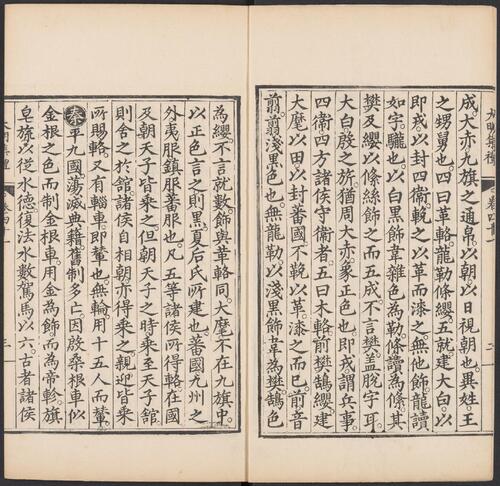 成大赤九旗之通帛以朝以日視朝也異姓王
之甥舅也四曰革輅龍勒條纓五就建大白以
即戎以封四衛輓之以革而漆之無他飾龍讀
如宇駹也以白黑飾韋雜色為勒條讀為絛其
樊及纓以絛絲飾之而五成不言樊蓋脫字耳
大白殷之旂猶周大赤象正色也即戎謂兵事
四衛四方諸侯守衛者五曰木輅前樊鵠纓建
大麾以田以封蕃國不輓以革漆之而已前音
翦翦淺黑色也無龍勒以淺黑飾韋為樊鵠色
為纓不言就數飾與革輅同大麾不在九旗中
以正色言之則黑夏后氏所建也蕃國九州之
外夷服鎮服蕃服也凡五等諸侯所得輅在國
及朝天子皆乘之但朝天子之時乘至天子館
則舍之於館諸侯自相朝亦得乘之親迎皆乘
所賜輅又有輜車即輦也無輪用十五人而輦
秦平九國蕩滅典籍舊制多亡因啟桑根車似
金根之色而制金根車用金為飾而為帝軫旗
皂旒以從水德復法水數駕馬以六古者諸侯
三